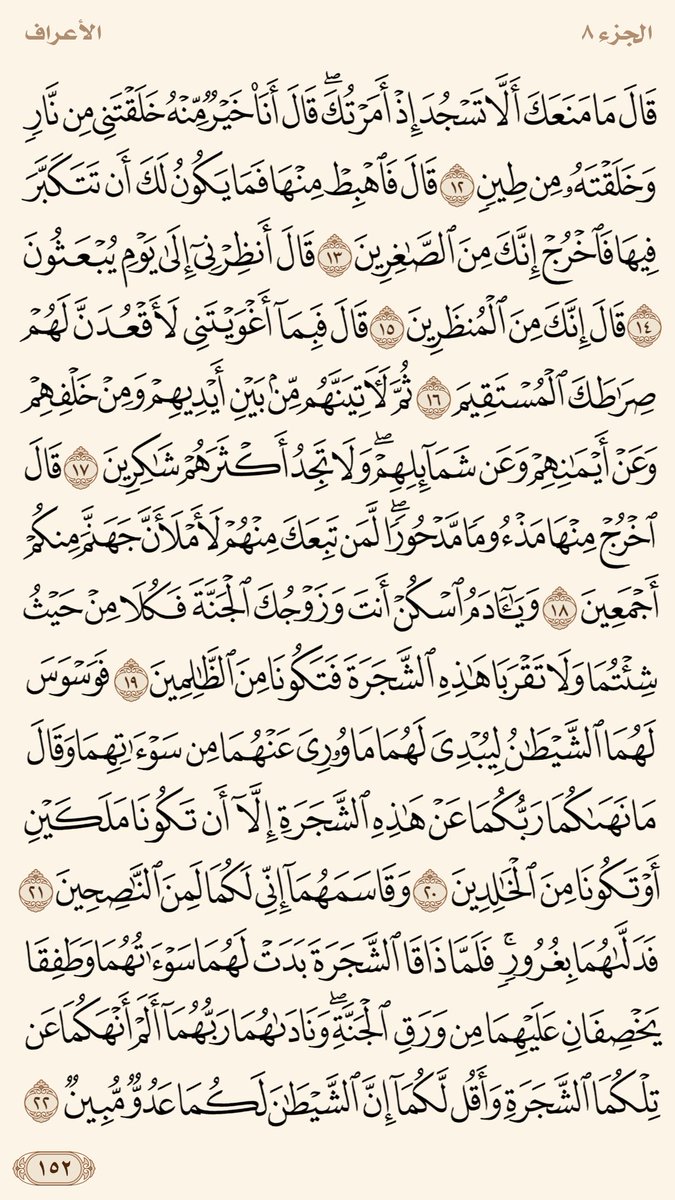 الجزء ٨
الأعراف
قَالَ مَا مَنَعَكَ أَلَّا تَسْجُدَ إِذْ أَمَرْتُكَۖ قَالَ أَنَا۠ خَيْرٌ مِّنْهُ خَلَقْتَنِي مِن نَّارٍ
وَخَلَقْتَهُۥ مِن طِينٍ ١٢ قَالَ فَٱهْبِطْ مِنْهَا فَمَا يَكُونُ لَكَ أَن تَتَكَبَّرَ
فِيهَا فَٱخْرُجْ إِنَّكَ مِنَ ٱلصَّٰغِرِينَ ١٣ قَالَ أَنظِرْنِيٓ إِلَىٰ يَوْمِ يُبْعَثُونَ
١٤ قَالَ إِنَّكَ مِنَ ٱلْمُنظَرِينَ ١٥ قَالَ فَبِمَآ أَغْوَيْتَنِي لَأَقْعُدَنَّ لَهُمْ
صِرَٰطَكَ ٱلْمُسْتَقِيمَ ١٦ ثُمَّ لَأٓتِيَنَّهُم مِّنۢ بَيْنِ أَيْدِيهِمْ وَمِنْ خَلْفِهِمْ
وَعَنْ أَيْمَٰنِهِمْ وَعَن شَمَآئِلِهِمْۖ وَلَا تَجِدُ أَكْثَرَهُمْ شَٰكِرِينَ ١٧ قَالَ
ٱخْرُجْ مِنْهَا مَذْءُومًا مَّدْحُورًاۖ لَّمَن تَبِعَكَ مِنْهُمْ لَأَمْلَأَنَّ جَهَنَّمَ مِنكُمْ
أَجْمَعِينَ ١٨ وَيَٰٓـَٔادَمُ ٱسْكُنْ أَنتَ وَزَوْجُكَ ٱلْجَنَّةَ فَكُلَا مِنْ حَيْثُ
شِئْتُمَا وَلَا تَقْرَبَا هَٰذِهِ ٱلشَّجَرَةَ فَتَكُونَا مِنَ ٱلظَّٰلِمِينَ ١٩ فَوَسْوَسَ
لَهُمَا ٱلشَّيْطَٰنُ لِيُبْدِيَ لَهُمَا مَا وُۥرِيَ عَنْهُمَا مِن سَوْءَٰتِهِمَا وَقَالَ
مَا نَهَىٰكُمَا رَبُّكُمَا عَنْ هَٰذِهِ ٱلشَّجَرَةِ إِلَّآ أَن تَكُونَا مَلَكَيْنِ
أَوْ تَكُونَا مِنَ ٱلْخَٰلِدِينَ ٢٠ وَقَاسَمَهُمَآ إِنِّي لَكُمَا لَمِنَ ٱلنَّٰصِحِينَ ٢١
فَدَلَّىٰهُمَا بِغُرُورٍۚ فَلَمَّا ذَاقَا ٱلشَّجَرَةَ بَدَتْ لَهُمَا سَوْءَٰتُهُمَا وَطَفِقَا
يَخْصِفَانِ عَلَيْهِمَا مِن وَرَقِ ٱلْجَنَّةِۖ وَنَادَىٰهُمَا رَبُّهُمَآ أَلَمْ أَنْهَكُمَا عَن
تِلْكُمَا ٱلشَّجَرَةِ وَأَقُل لَّكُمَآ إِنَّ ٱلشَّيْطَٰنَ لَكُمَا عَدُوٌّ مُّبِينٌ ٢٢
١٥٢